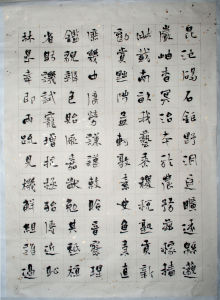 昆池碣石鉅野洞庭曠遠緜邈
巖岫杳冥治本於農務茲稼穡
俶載南畝我藝黍稷稅熟貢新
勸賞黜陟孟軻敦素史魚秉直
庶幾中庸勞謙謹敕聆音察理
鑑貌辨色貽厥嘉猷勉其祗植
省躬譏誡寵增抗極殆辱近恥
林皋幸即兩疏見機解組誰逼